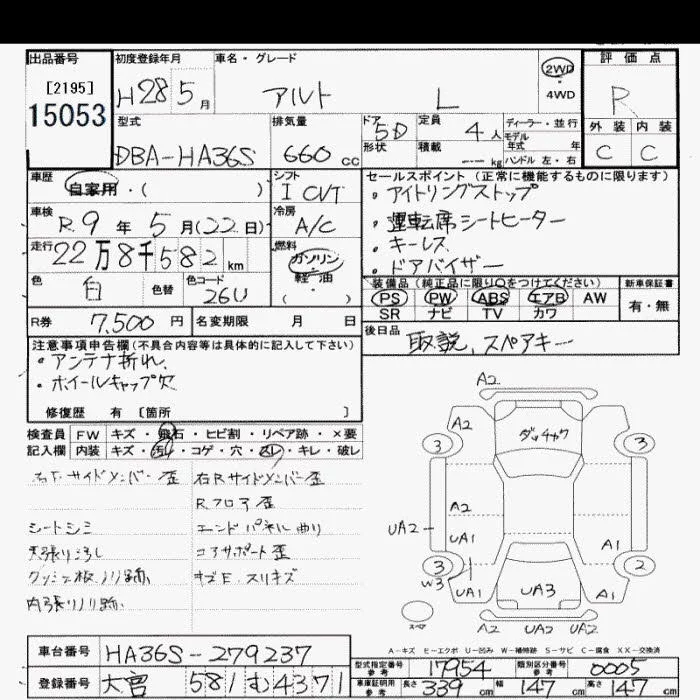 出品番号 初度登録年月 車名・グレード 評価点
[2195]
15053
H28 5月 アルト L 2WD R
・4WD
型式 排気量 ドア 定員 ディーラー・並行 外装 内装
DBA-HA36S 660cc 5D 4人 モデル年式 年 C C
形状 積載 kg ハンドル 左・右
車歴 シフト セールスポイント(正常に機能するものに限ります)
自家用・( ) I CVT ・アイドリングストップ
車検 冷房 ・運転席シートヒーター
R.9年5月(22日) A/C ・キーレス
走行 燃料 ・ドアバイザー
22万8千582km ガソリン
軽油
・( )
色 色替 色コード 装備品(純正品に限り○をつけてください) 新車保証書
白 26U PS PW ABS エアB AW 有・無
SR ナビ TV カワ
R券 7,500円 名変期限 月 日 後日品 取説、スペアキー
注意事項申告欄(不具合内容等は具体的に記入して下さい)
・アンテナ折れ、
・ホイールキャップ欠
修復歴 有 [箇所 ]
検査員 FW キズ・飛石・ヒビ割・リペア跡・×要
記入欄 内装 キズ・汚れ・コゲ・穴・スレ・キレ・破レ
右F.サイドメンバー歪 右Rサイドメンバー歪
Rフロア歪
シートシミ エンドパネル曲り
天張り汚し コアサポート歪
キズE.スリキズ
内張りノリ跡.
A2
A2 ダッチャク
3 3
A2
UA2 UA1 A1
3 2
W3 UA1 UA3 A1
スペア A2 UA2 UA2
A-キズ E-エクボ U-凹み W-補修跡 S-サビ C-腐食 XX-交換済
車台番号 HA36S-279237
登録番号 大宮 581む4371
型式指定番号 参考 17954 類別区分番号 参考 0005
車庫証明用 参考 長さ 339cm 幅 147cm 高さ 147cm